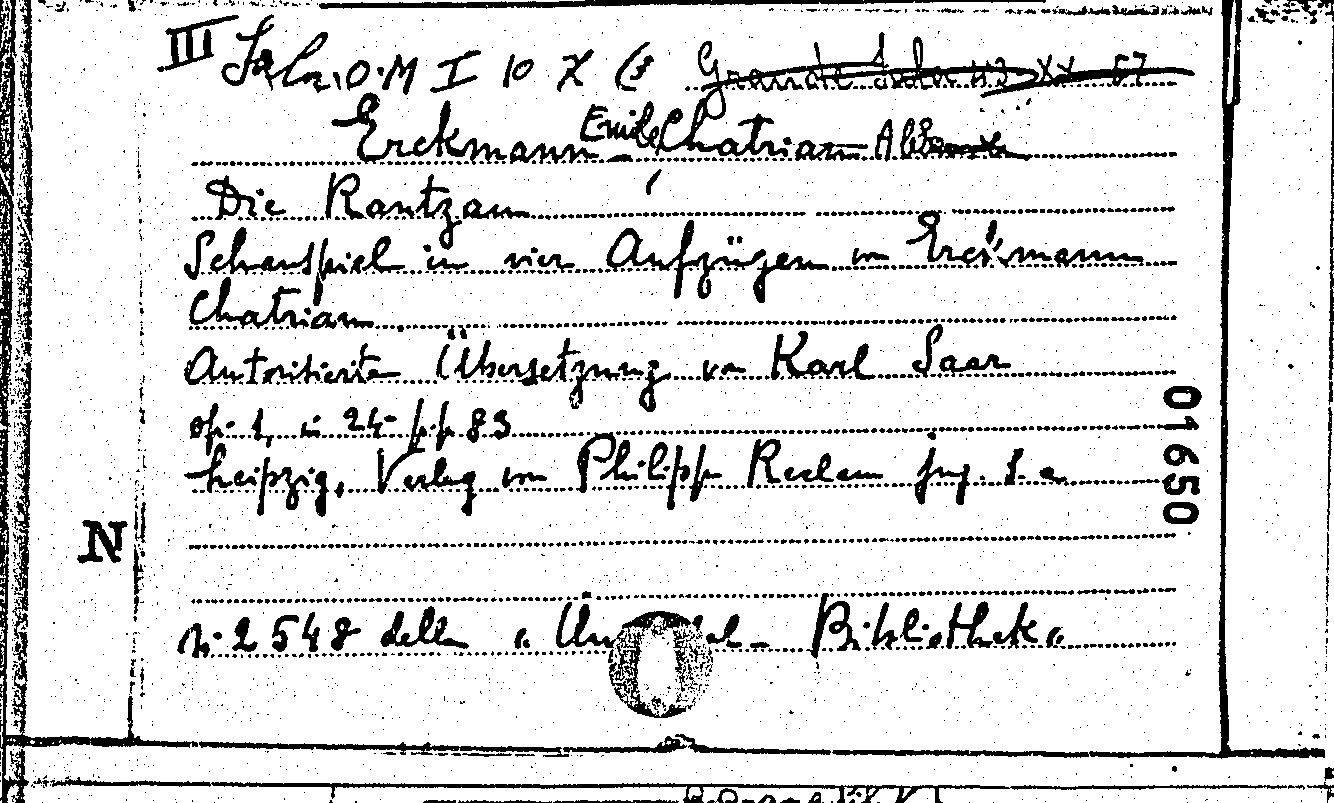 III Sala. O. M I 10 Z (3 Grande XX 57
Erckmann Emile Chatrian
Die Rantzau
Schauspiel in vier Aufzügen von Erckmann
Chatrian
Autorisierte Übersetzung von Karl Saar
op. 1, in 24- pp 83
Leipzig, Verlag von Philipp Reclam jun. s. a.
N
01650
n. 2548 della "Un Bibliothek"